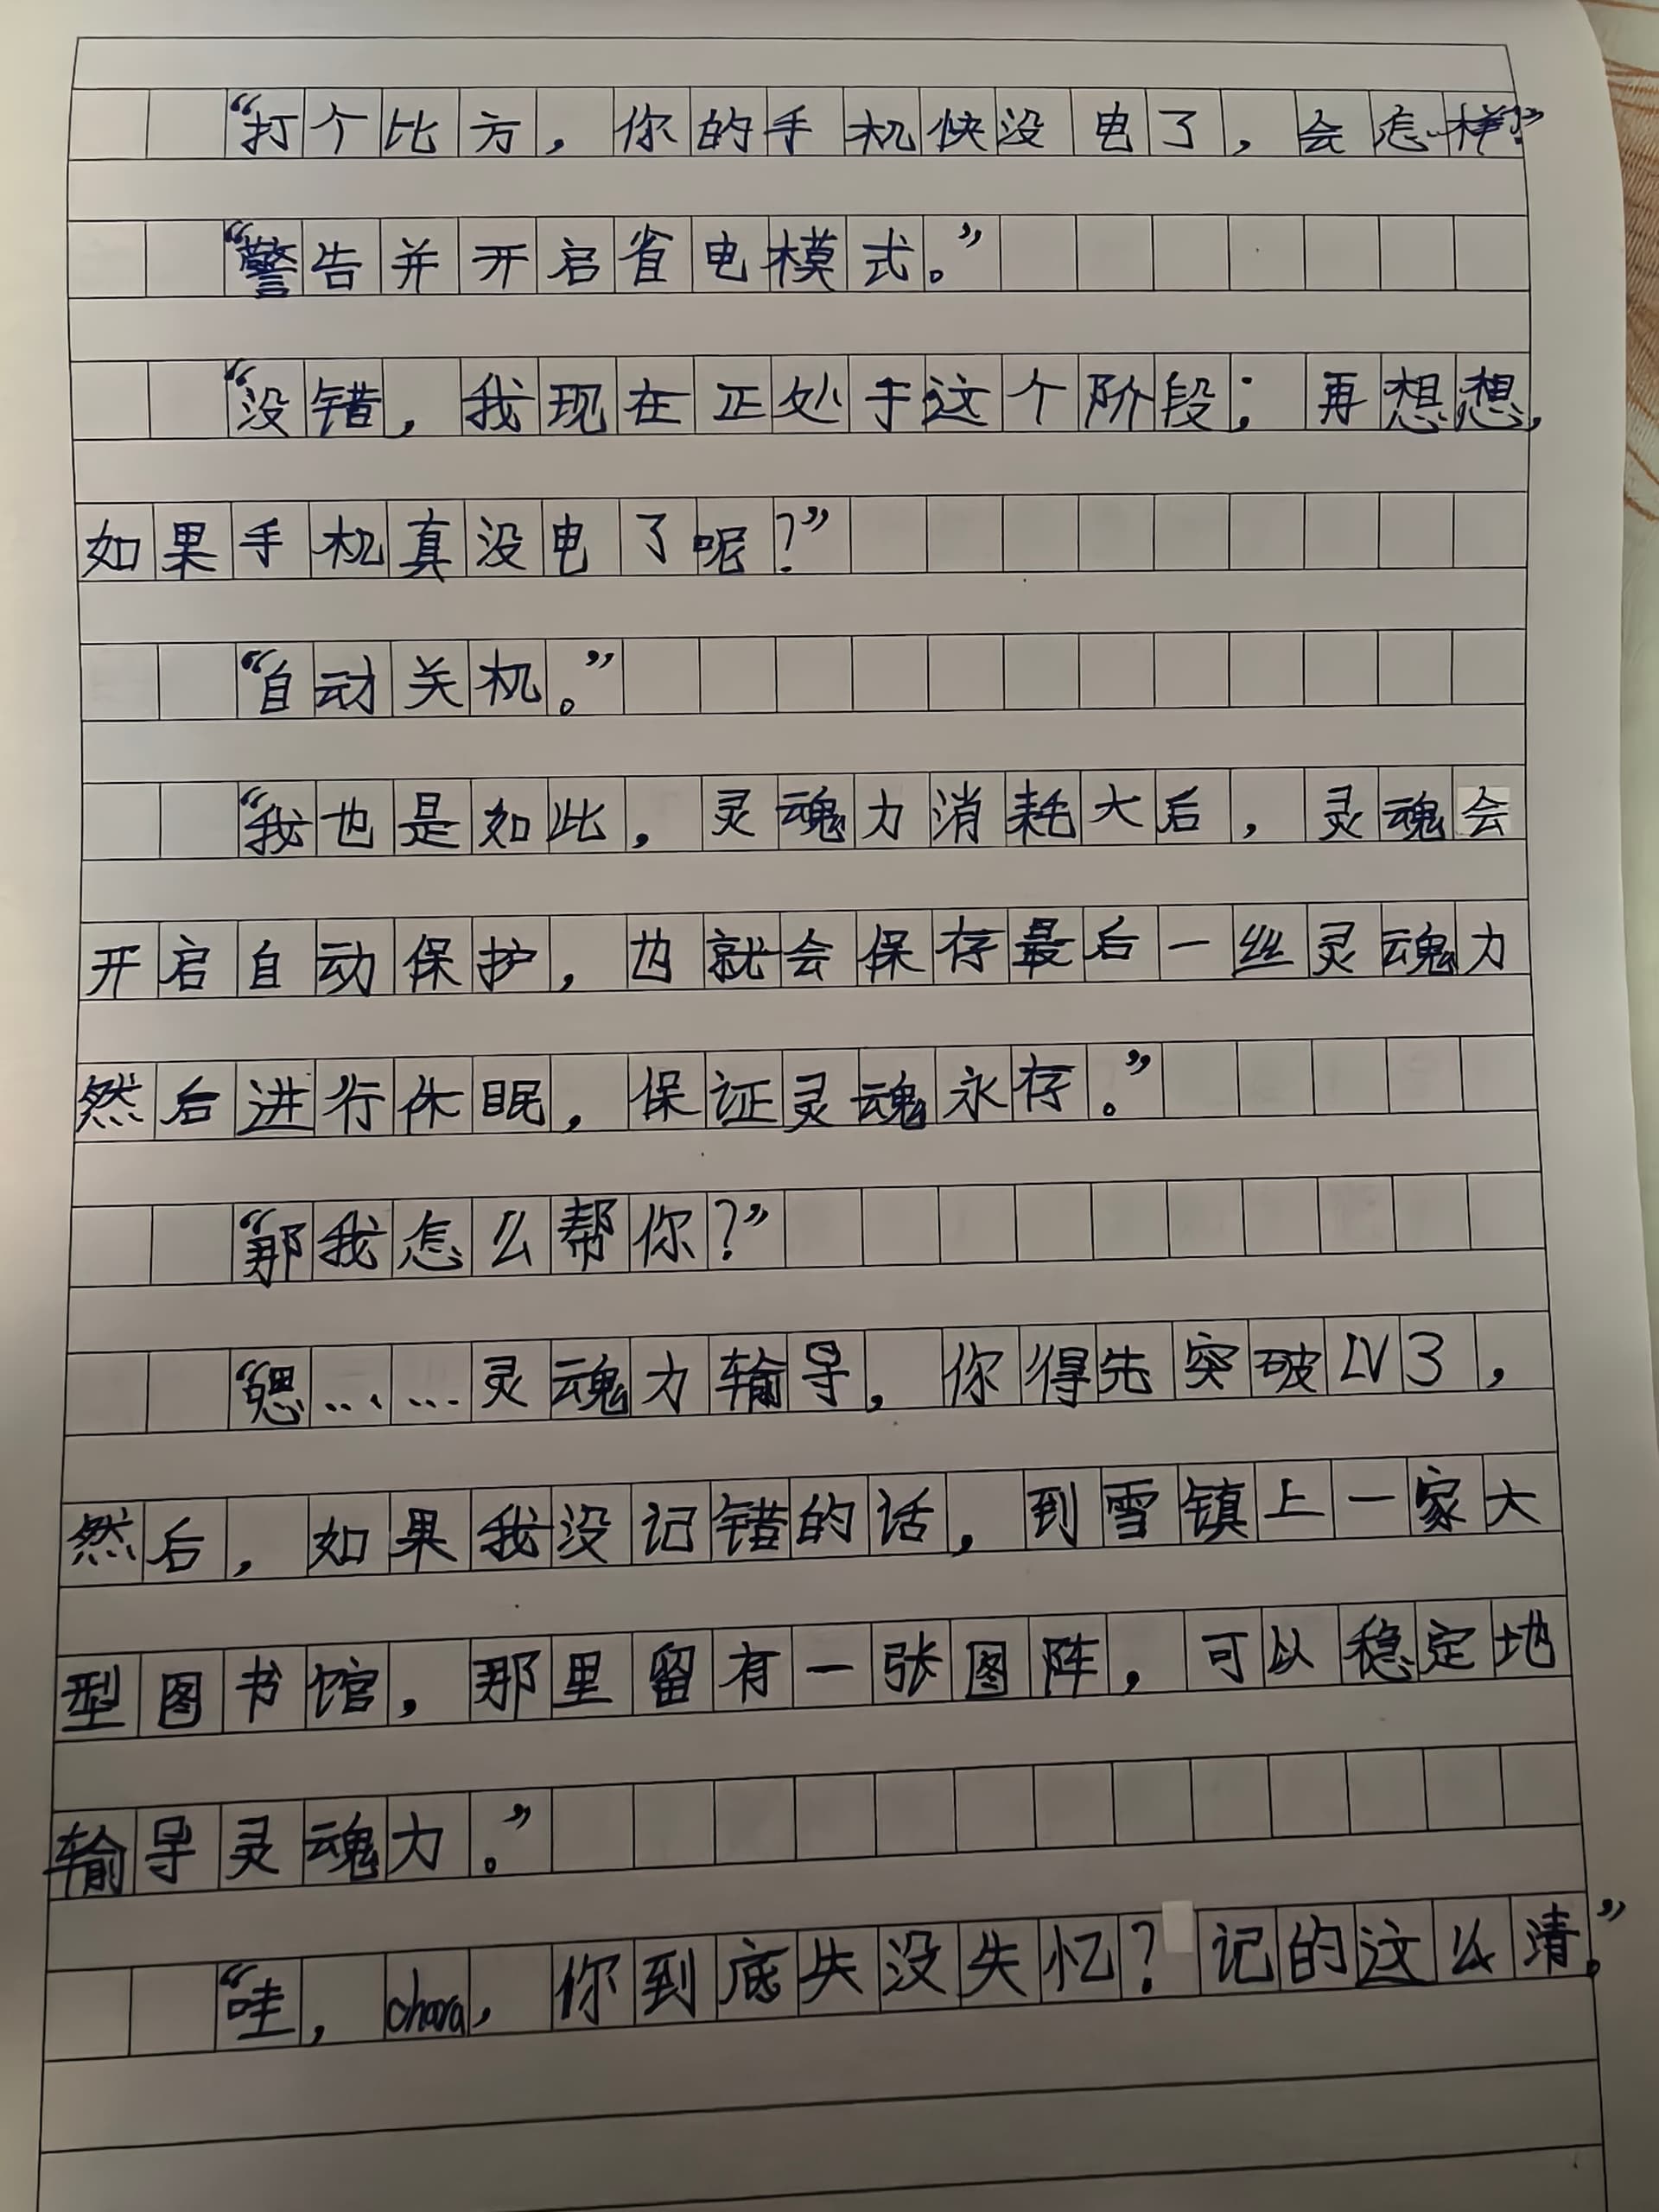 “打个比方，你的手机快没电了，会怎样？”
“警告并开启省电模式。”
“没错，我现在正处于这个阶段；再想想，
如果手机真没电了呢？”
“自动关机。”
“我也是如此，灵魂力消耗大后，灵魂会
开启自动保护，也就会保存最后一丝灵魂力
然后进行休眠，保证灵魂永存。”
“那我怎么帮你？”
“嗯……灵魂力输导，你得先突破LV3，
然后，如果我没记错的话，到雪镇上一家大
型图书馆，那里留有一张图阵，可以稳定地
输导灵魂力。”
“哇，chara，你到底失没失忆？记的这么清。”